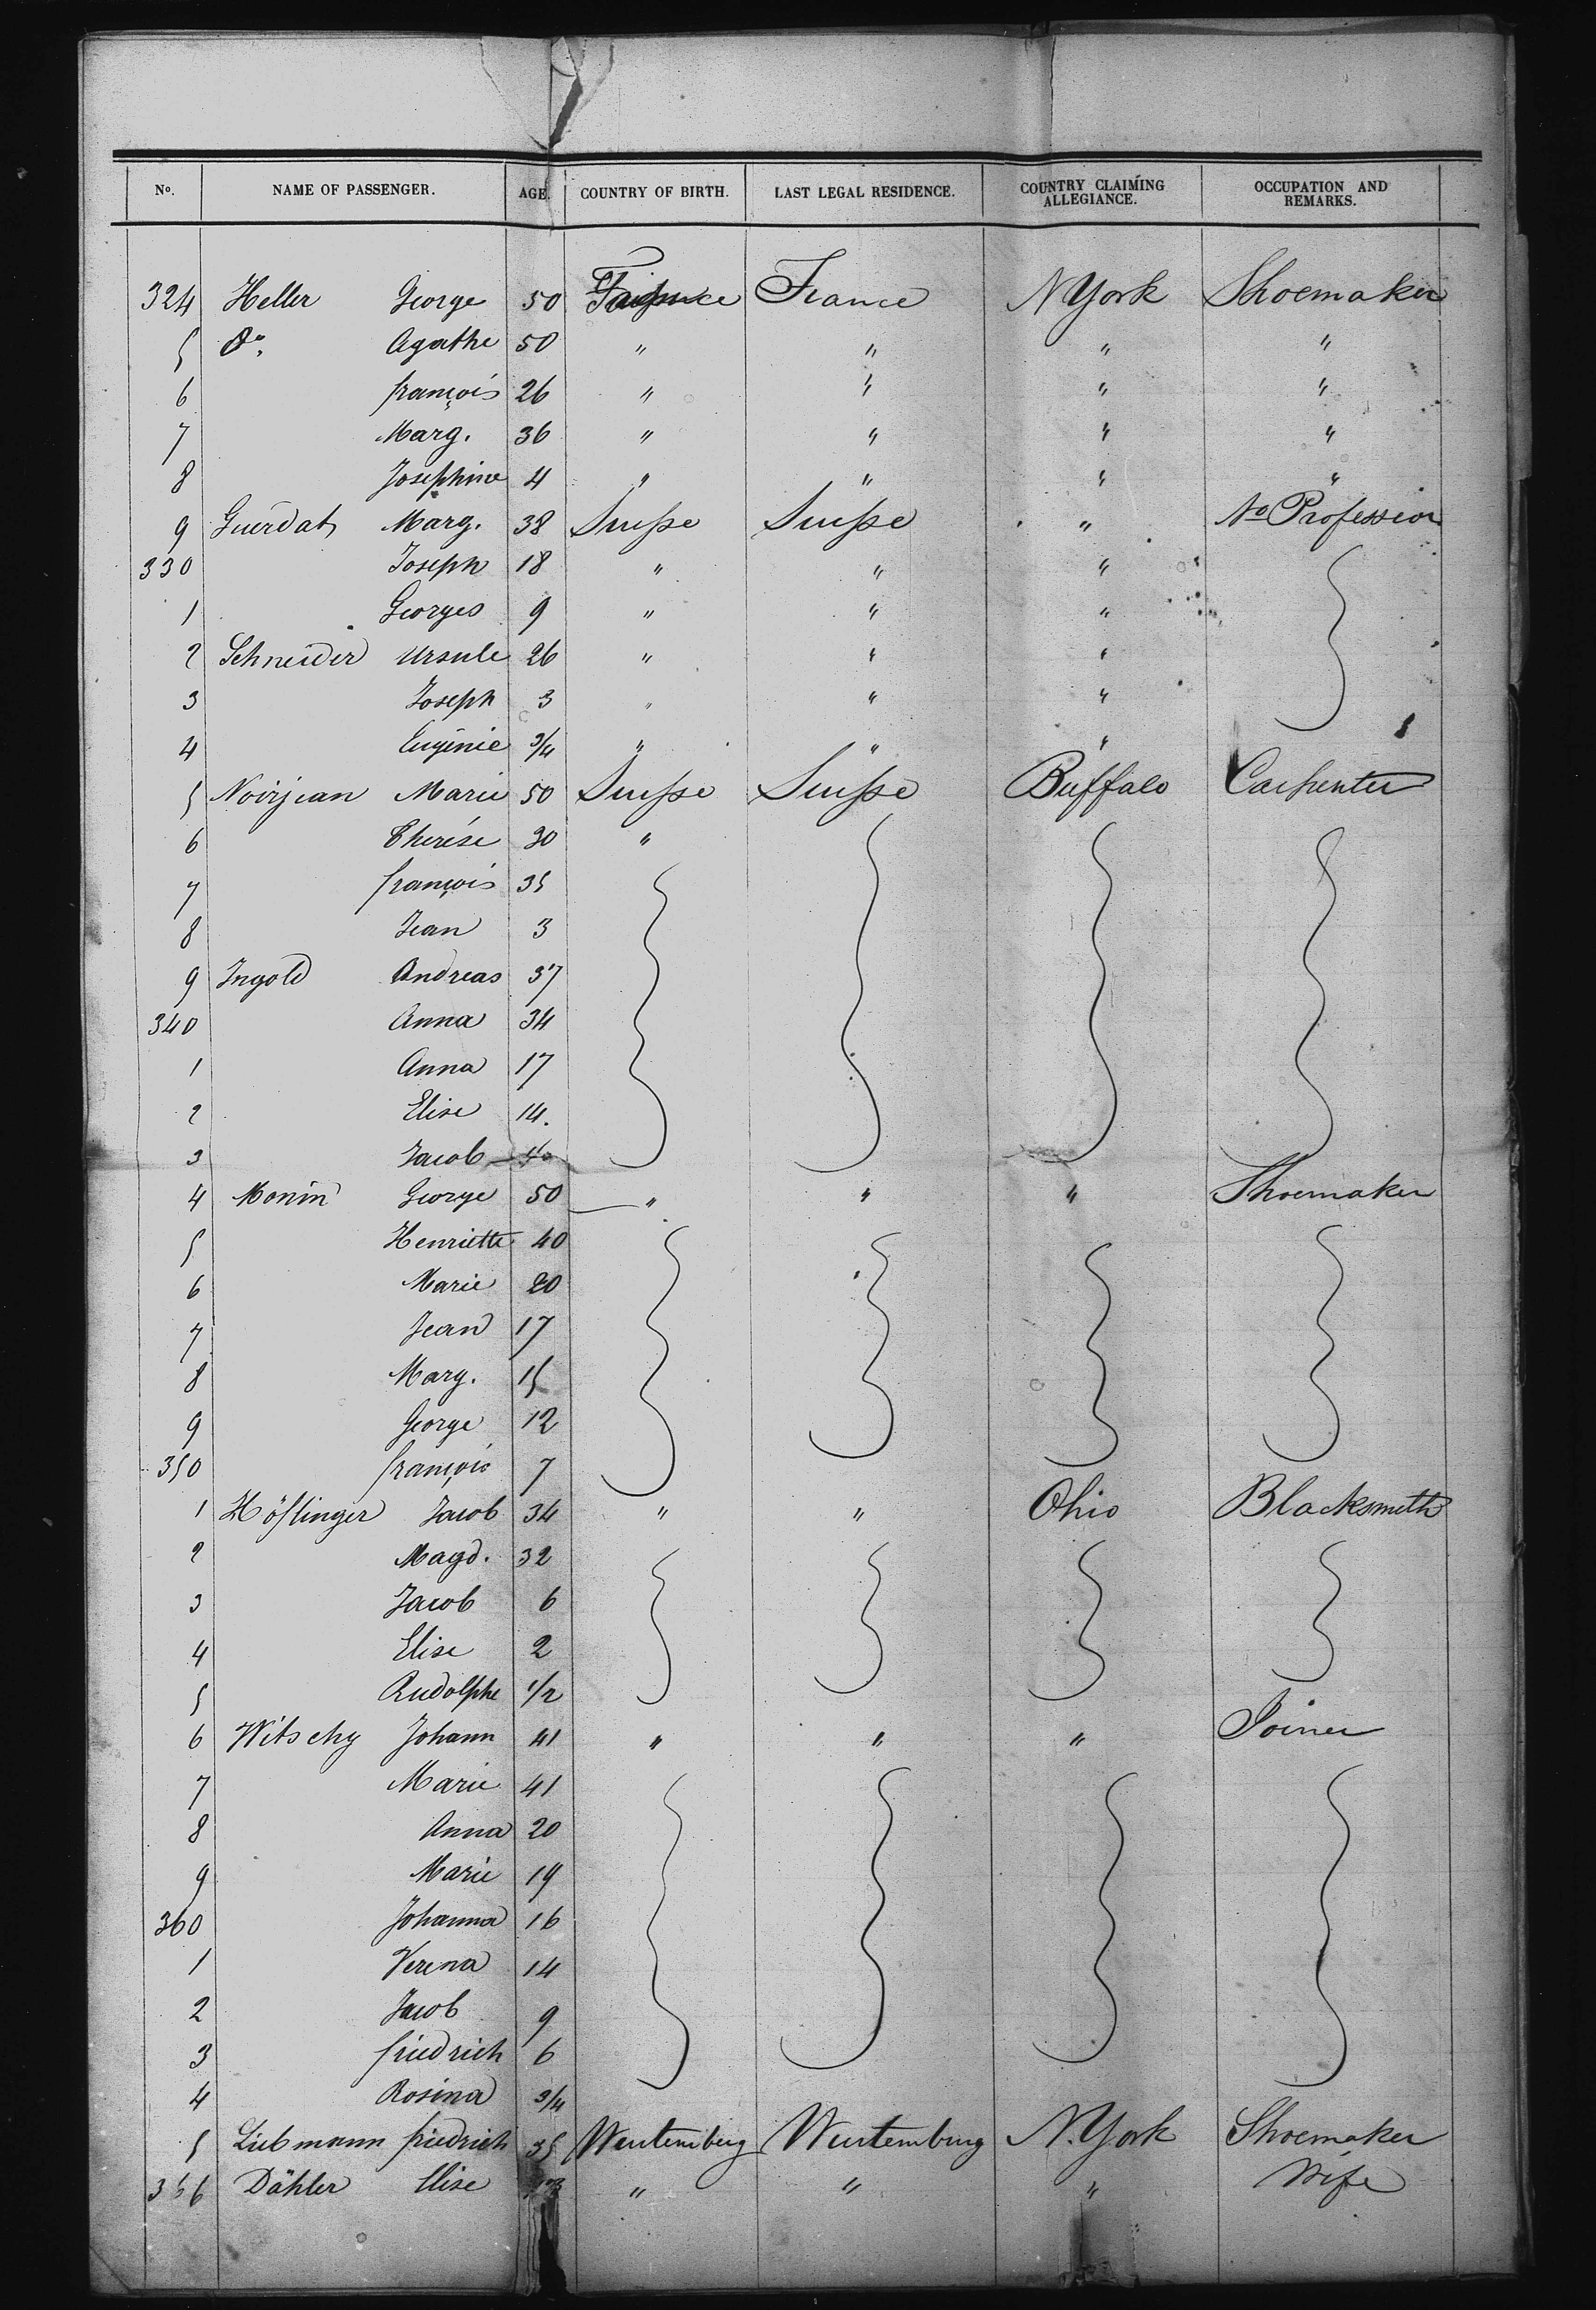 No. NAME OF PASSENGER. AGE. COUNTRY OF BIRTH. LAST LEGAL RESIDENCE. COUNTRY CLAIMING ALLEGIANCE. OCCUPATION AND REMARKS.
324 Heller George 50 France France N York Shoemaker
5 Do. Agathe 50 " " " "
6 françois 26 " " " "
7 Marg. 36 " " " "
8 Josephine 4 " " " "
9 Guerdat Marg. 38 Suisse Suisse " No Profession
330 Joseph 18 " " "
1 Georges 9 " " "
2 Schneider Ursule 26 " " "
3 Joseph 3 " " "
4 Eugénie 3/4 " " "
5 Noirjean Marie 50 Suisse Suisse Buffalo Carpenter
6 Therése 30 "
7 françois 35
8 Jean 3
9 Ingold Andreas 37
340 Anna 34
1 Anna 17
2 Elise 14.
3 Jacob
4 Monin George 50 " " " Shoemaker
5 Henriette 40
6 Marie 20
7 Jean 17
8 Marg. 15
9 George 12
350 françois 7
1 Höflinger Jacob 34 " " Ohio Blacksmith
2 Magd. 32
3 Jacob 6
4 Elise 2
5 Rudolphe 1/2
6 Witschy Johann 41 " " " Joiner
7 Marie 41
8 Anna 20
9 Marie 19
360 Johanna 16
1 Verena 14
2 Jacob 9
3 friedrich 6
4 Rosina 3/4
5 Liebmann friedrich 35 Wurtemberg Wurtemburg N. York Shoemaker
366 Dähler Elise " " " Wife